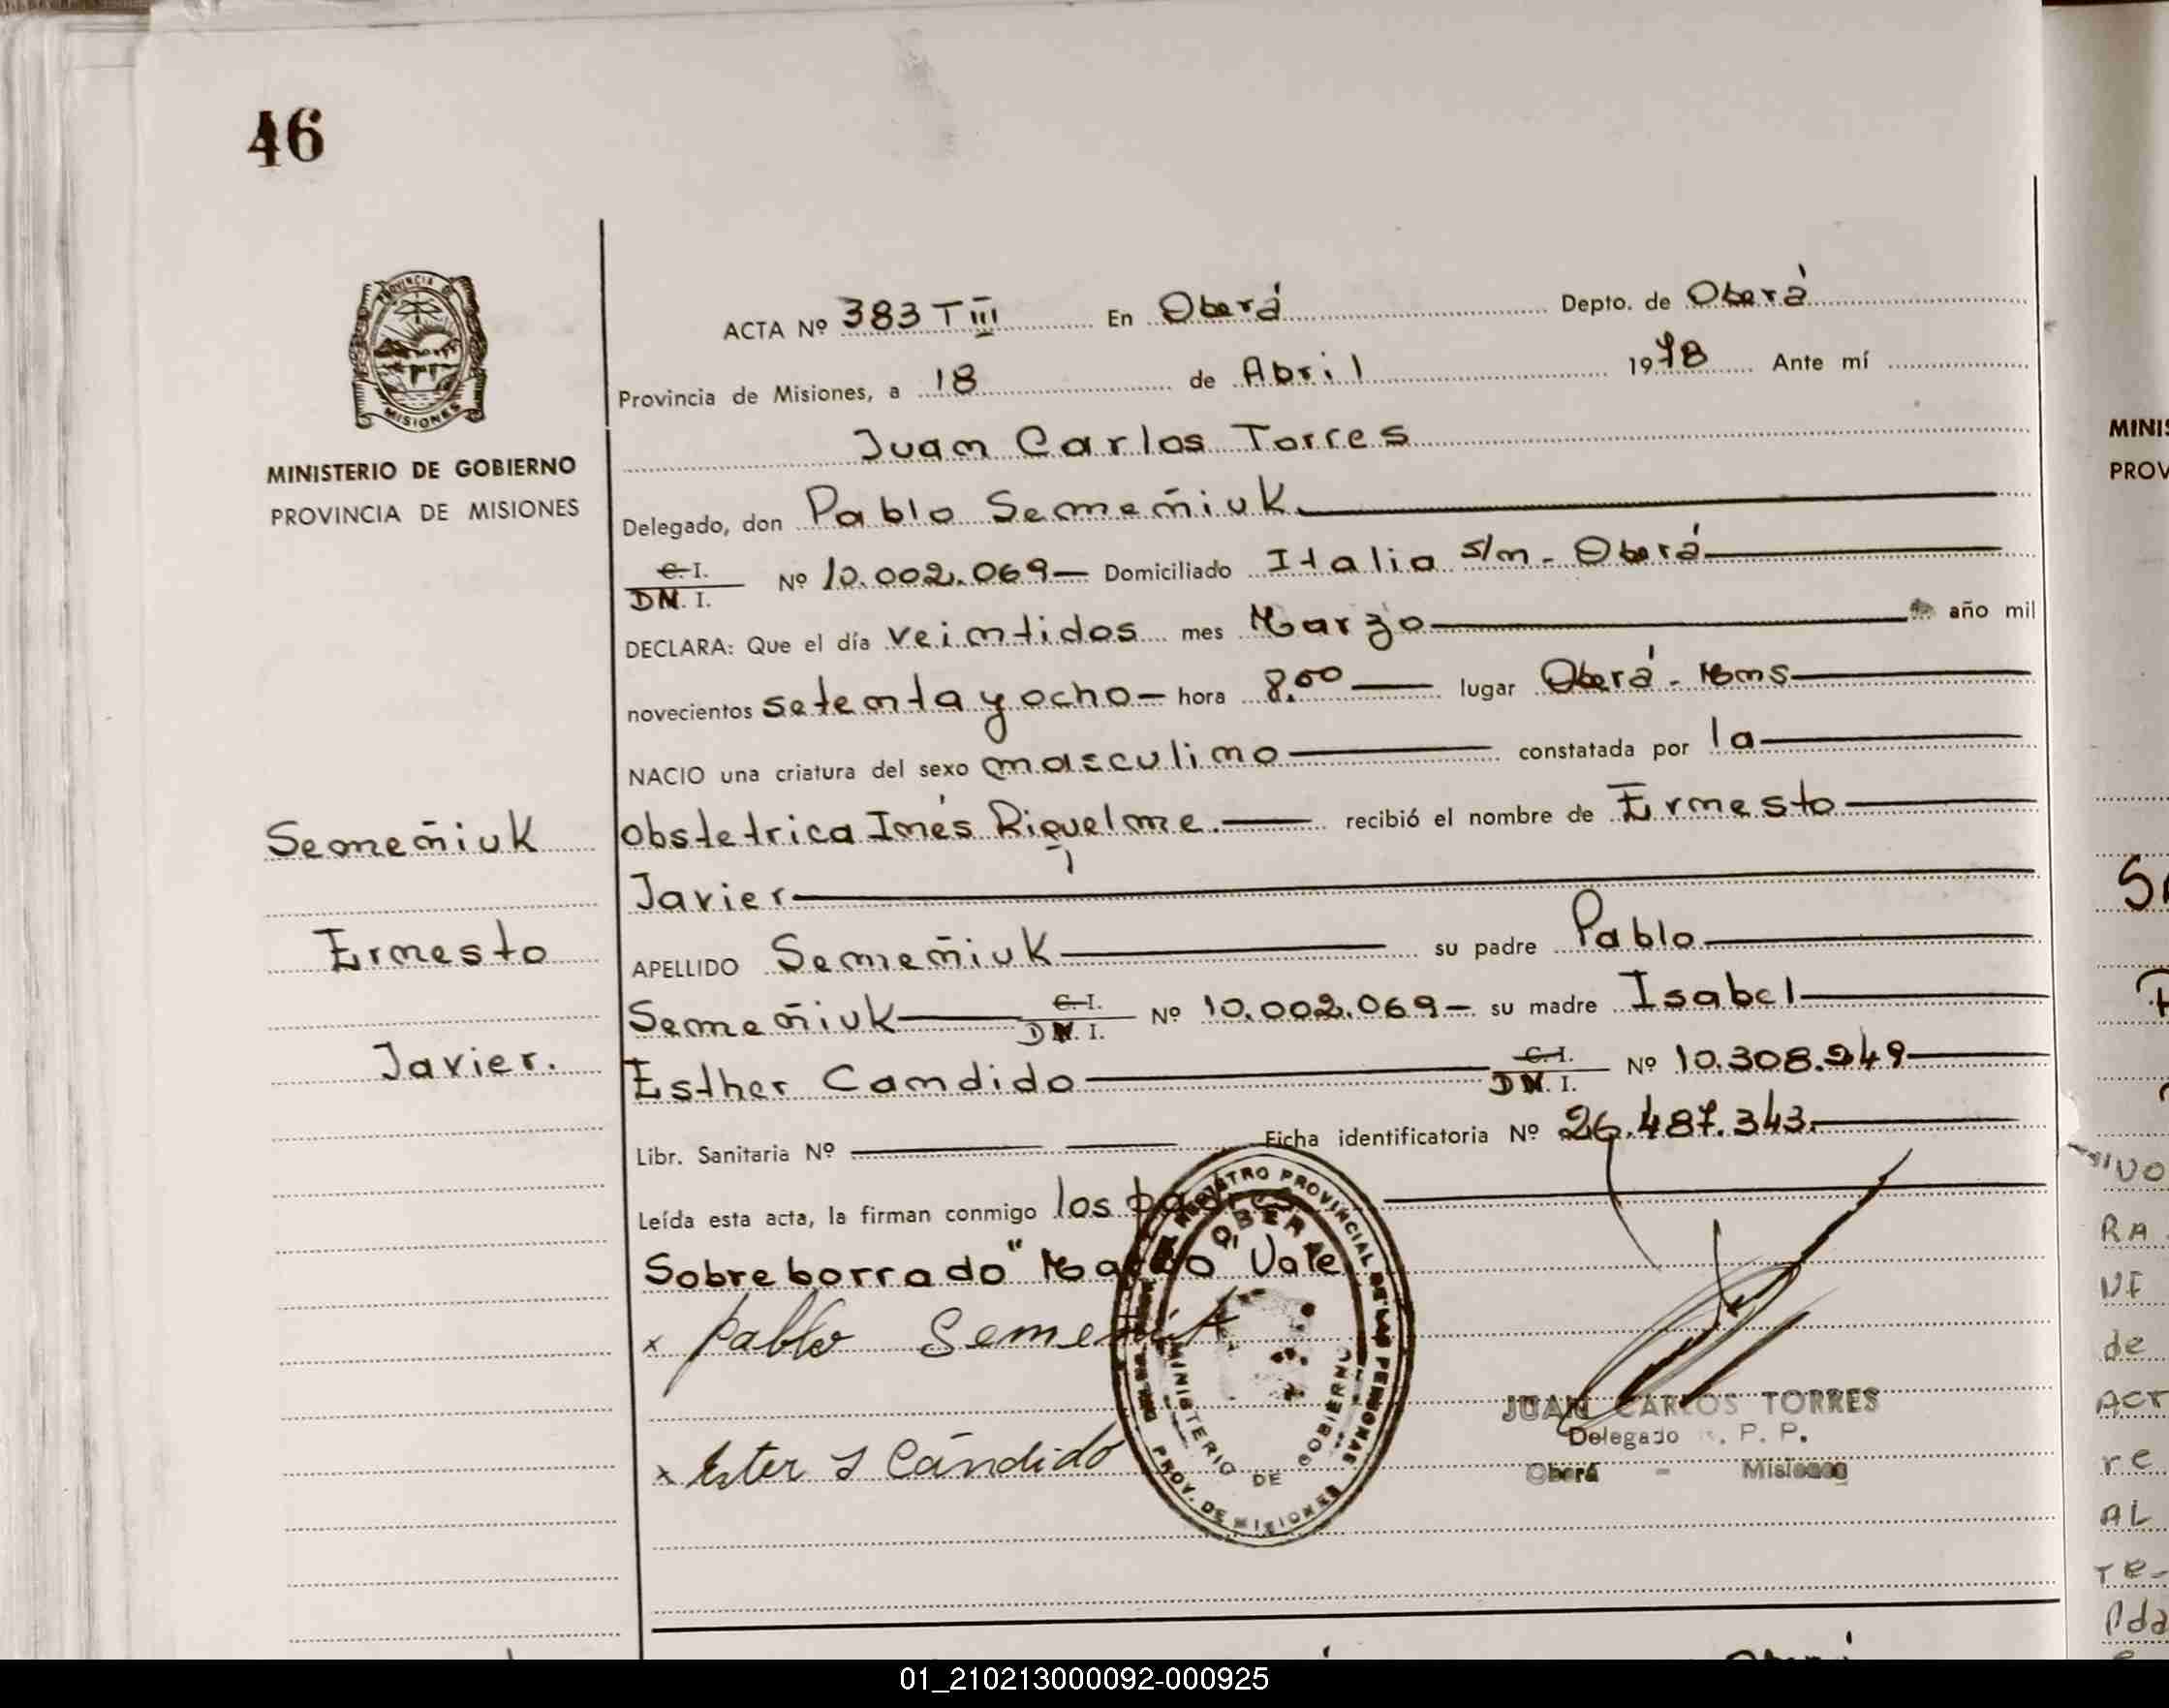 46
PROVINCIA DE
MISIONES
MINISTERIO DE GOBIERNO
PROVINCIA DE MISIONES
Semeñiuk
Ernesto
Javier.
ACTA Nº 383 T III En Oberá Depto. de Oberá
Provincia de Misiones, a 18 de Abril 1978 Ante mí
Juan Carlos Torres
Delegado, don Pablo Semeñiuk
C. I.
D N. I. Nº 10.002.069 — Domiciliado Italia s/n - Oberá
DECLARA: Que el día veintidos mes Marzo año mil
novecientos setenta y ocho — hora 8.00 — lugar Oberá - Mns
NACIO una criatura del sexo masculino constatada por la
obstetrica Inés Riquelme. — recibió el nombre de Ernesto
Javier
APELLIDO Semeñiuk su padre Pablo
Semeñiuk — C. I. D N. I. Nº 10.002.069 — su madre Isabel
Esther Candido — C. I. D N. I. Nº 10.308.949
Libr. Sanitaria Nº Ficha identificatoria Nº 26.487.343.
Leída esta acta, la firman conmigo los padres
Sobre borrado "Marzo" Vale
x Pablo Semeñiuk
x Ester I Cándido
REGISTRO PROVINCIAL DE LAS PERSONAS
OBERA
MINISTERIO DE GOBIERNO
PROV. DE MISIONES
JUAN CARLOS TORRES
Delegado R. P. P.
Oberá - Misiones
MINIS
PROV
UO
RA
de
ACT
re
AL
01_210213000092-000925